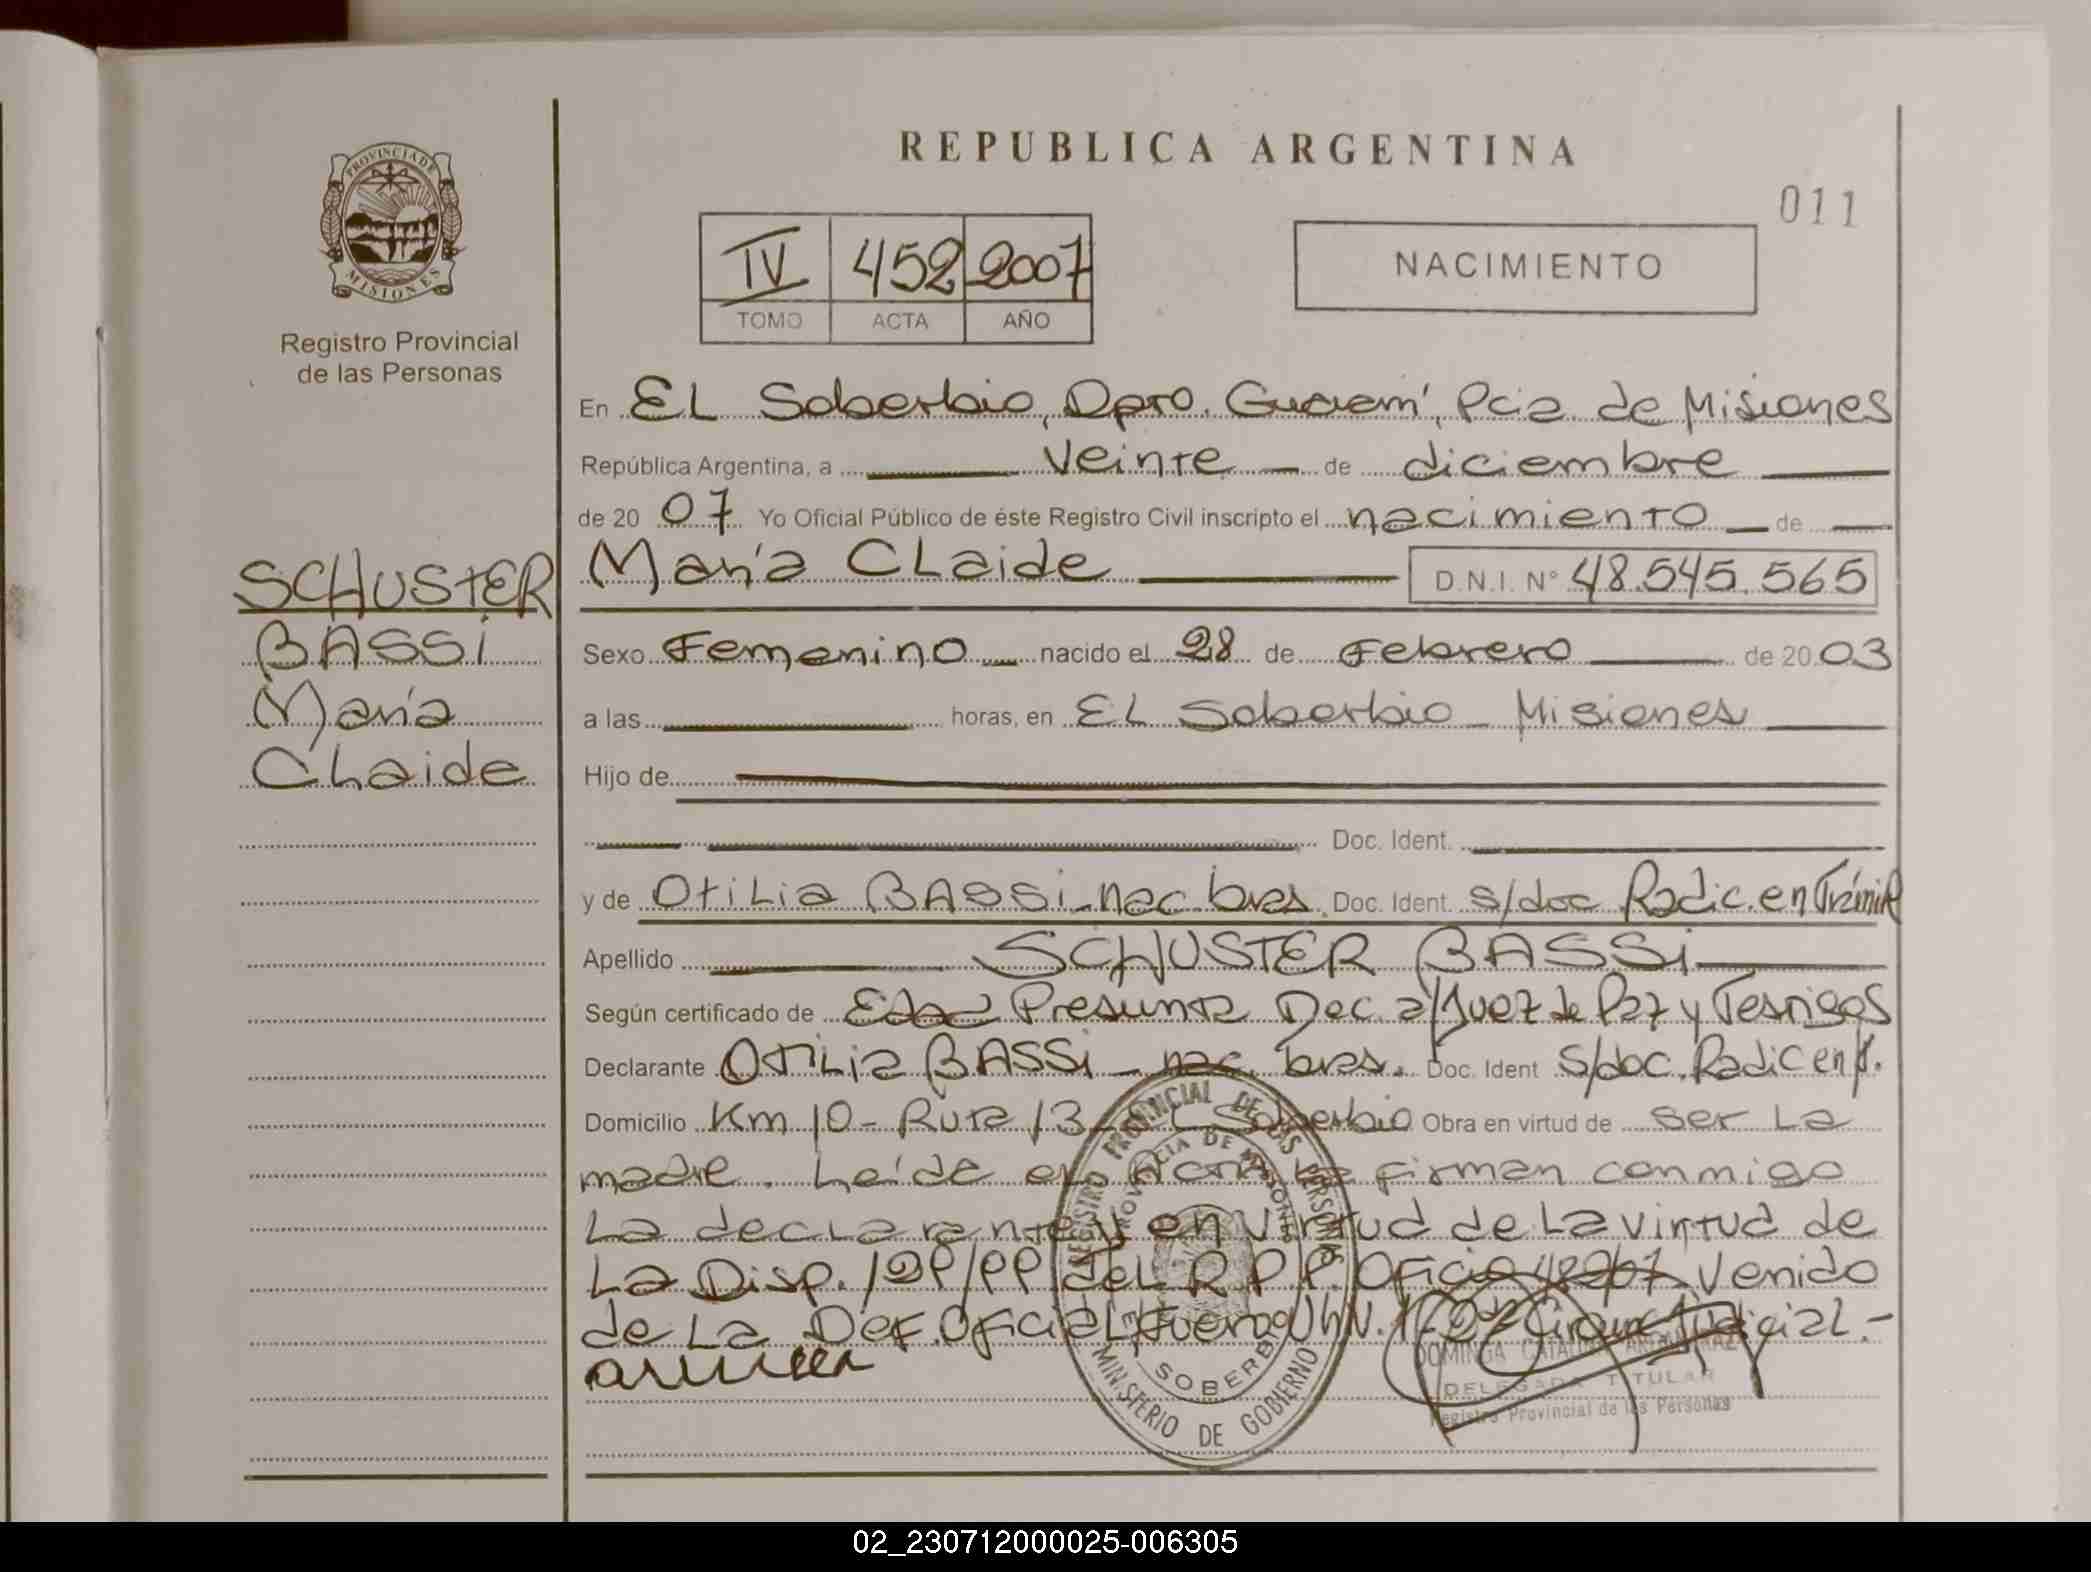 REPUBLICA ARGENTINA
011
PROVINCIA DE
MISIONES
Registro Provincial
de las Personas
IV 452 2007
TOMO ACTA AÑO
NACIMIENTO
En EL Soberbio, Dpto. Guaraní, Pcia de Misiones
República Argentina, a Veinte de diciembre
de 20 07 Yo Oficial Público de éste Registro Civil inscripto el nacimiento de
María CLaide D.N.I. N° 48.545.565
SCHUSTER
BASSi
María
CLaide
Sexo Femenino nacido el 28 de Febrero de 20 03
a las horas, en EL Soberbio - Misiones
Hijo de
Doc. Ident.
y de OtiLia BASSi - nac. bras. Doc. Ident. s/doc Radic. en Trámite
Apellido SCHUSTER BASSi
Según certificado de Edad Presunta Dec. a/Juez de Paz y Testigos
Declarante OtiLia BASSi - nac. bras. Doc. Ident S/doc. Radic en t.
Domicilio Km 10 - Ruta 13 - EL Soberbio Obra en virtud de ser La
madre. Leída el Acta La firman conmigo
La declarante y en virtud de La virtud de
La Disp. 122/99 deL R.P.P. Oficio Venido
de La Def. OficiaL Judicial.-
REGISTRO PROVINCIAL DE LAS PERSONAS
PROVINCIA DE MISIONES
SOBERBIO
MINISTERIO DE GOBIERNO
DOMINGA CATALINA
DELEGADA TITULAR
Registro Provincial de las Personas
02_230712000025-006305